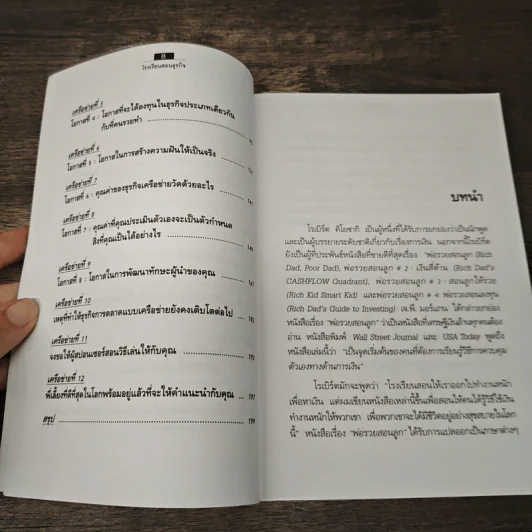 8
โรงเรียนสอนธุรกิจ
เครือข่ายที่ 5
โอกาสที่ 4 : โอกาสที่จะได้ลงทุนในธุรกิจประเภทเดียวกัน
กับที่คนรวยทำ
เครือข่ายที่ 6
โอกาสที่ 5 : โอกาสในการสร้างความฝันให้เป็นจริง
เครือข่ายที่ 7
โอกาสที่ 6 : คุณค่าของธุรกิจเครือข่ายวัดด้วยอะไร
เครือข่ายที่ 8
โอกาสที่ 7 : คุณค่าที่คุณประเมินตัวเองจะเป็นตัวกำหนด
สิ่งที่คุณเป็นได้อย่างไร
เครือข่ายที่ 9
โอกาสที่ 8 : โอกาสในการพัฒนาทักษะผู้นำของคุณ
เครือข่ายที่ 10
เหตุที่ทำให้ธุรกิจการตลาดแบบเครือข่ายยังคงเติบโตต่อไป
เครือข่ายที่ 11
จงขอให้ผู้สปอนเซอร์สอนวิธีเล่นให้กับคุณ 195
เครือข่ายที่ 12
พี่เลี้ยงที่ดีที่สุดในโลกพร้อมอยู่แล้วที่จะให้คำแนะนำกับคุณ ... 197
สรุป 199
บทนำ
โรเบิร์ต คิโยซากิ เป็นผู้หนึ่งที่ได้รับการยกย่องว่าเป็นนักพูด
และเป็นผู้บรรยายระดับชาติเกี่ยวกับเรื่องการเงิน นอกจากนี้โรเบิร์ต
ยังเป็นผู้ที่ประพันธ์หนังสือที่ขายดีที่สุดเรื่อง "พ่อรวยสอนลูก (Rich
Dad, Poor Dad), พ่อรวยสอนลูก # 2 : เงินสี่ด้าน (Rich Dad's
CASHFLOW Quadrant), พ่อรวยสอนลูก # 3 : สอนลูกให้รวย
(Rich Kid Smart Kid) และพ่อรวยสอนลูก # 4 พ่อรวยสอนลงทุน
(Rich Dad's Guide to Investing) เจ.พี. มอร์แกน ได้กล่าวยกย่อง
หนังสือเรื่อง "พ่อรวยสอนลูก" ว่าเป็นหนังสือที่เศรษฐีเงินล้านทุกคนต้อง
อ่าน หนังสือพิมพ์ Wall Street Journal และ USA Today พูดถึง
หนังสือเล่มนี้ว่า "เป็นจุดเริ่มต้นของคนที่ต้องการเรียนรู้วิธีการควบคุม
ตัวเองทางด้านการเงิน"
โรเบิร์ตมักจะพูดว่า "โรงเรียนสอนให้เราออกไปทำงานหนัก
เพื่อหาเงิน แต่ผมเขียนหนังสือเหล่านี้ขึ้นเพื่อสอนให้คนได้รู้วิธีใช้เงิน
ทำงานหนักให้พวกเขา เพื่อพวกเขาจะได้มีชีวิตอยู่อย่างสุขสบายในโลก
นี้" หนังสือเรื่อง "พ่อรวยสอนลูก" ได้รับการแปลออกเป็นภาษาต่างๆ